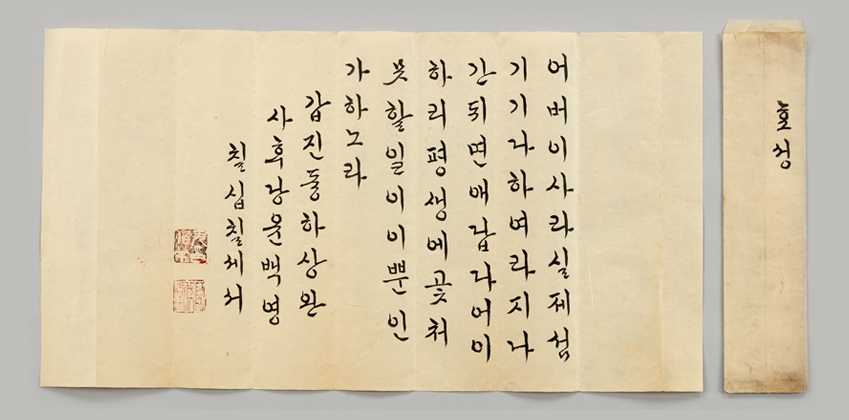 효성
어버이사라실제섬
기기다하여라지나
간뒤면애답다어이
하리평생에곳쳐
못할일이이뿐인
가하노라
갑진동하상완
사후당윤백영
칠십칠세서